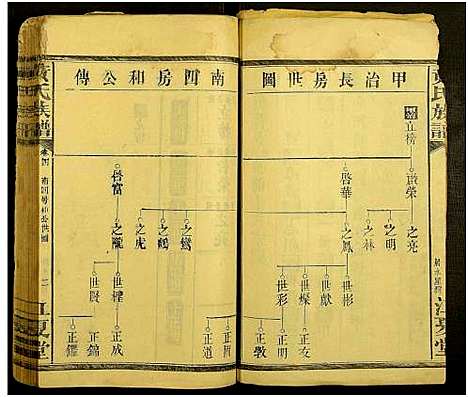 甲治長房世圖
南四房和公傳
黃氏族譜
宜榜
啓榮
啓華
之亮
之明
之林
之鳳
世彬
世獻
世燦
世彩
正友
正明
正教
江夏堂
啓富
之鸞
之鶴
之虎
之龍
世賢
正道
正成
正錦
正鑼
氏族譜
卷四
南四房和公世圖
江夏堂